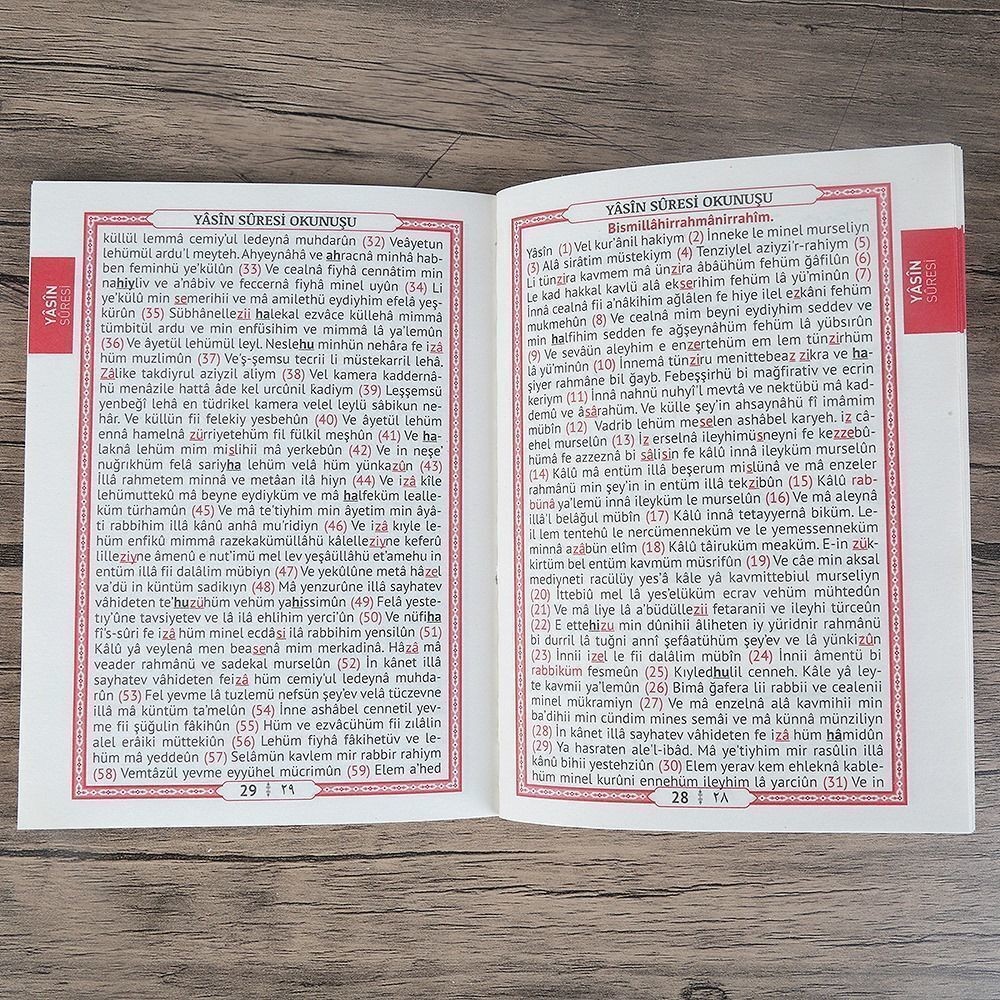 YÂSÎN SÛRESİ OKUNUŞU
Bismillâhirrahmânirrahîm.
Yâsîn (1) Vel kur'ânil hakiym (2) İnneke le minel murseliyn
(3) Alâ sirâtim müstekiym (4) Tenziylel aziyzi'r-rahiym (5)
Li tünzira kavmem mâ ünzira âbâühüm fehüm ğafilûn (6)
Le kad hakkal kavlü alâ ekserihim fehüm lâ yü'minûn (7)
İnnâ cealnâ fii a'nâkihim ağlâlen fe hiye ilel ezkâni fehüm
mukmehûn (8) Ve cealnâ mim beyni eydiyhim seddev ve
min halfihim sedden fe ağşeynâhüm fehüm lâ yübsırûn
(9) Ve sevâün aleyhim e enzertehüm em lem tünzirhüm
lâ yü'minûn (10) İnnemâ tünziru menittebeaz zikra ve ha-
şiyer rahmâne bil ğayb. Febeşşirhü bi mağfirativ ve ecrin
keriym (11) İnnâ nahnü nuhyi'l mevtâ ve nektübü mâ kad-
demû ve âsârahüm. Ve külle şey'in ahsaynâhü fî imâmim
mübîn (12) Vadrib lehüm meselen ashâbel karyeh. iz câ-
ehel murselûn (13) İz erselnâ ileyhimüsneyni fe kezzebû-
hümâ fe azzeznâ bi sâlisin fe kâlû innâ ileyküm murselûn
(14) Kâlû mâ entüm illâ beşerum mislünâ ve mâ enzeler
rahmânü min şey'in in entüm illâ tekzibûn (15) Kâlû rab-
bünâ ya'lemü innâ ileyküm le murselûn (16) Ve mâ aleynâ
illâ'l belâğul mübîn (17) Kâlû innâ tetayyernâ biküm. Le-
il lem tentehû le nercümenneküm ve le yemessenneküm
minnâ azâbün elîm (18) Kâlû tâiruküm meaküm. E-in zük-
kirtüm bel entüm kavmüm müsrifûn (19) Ve câe min aksal
mediyneti racülüy yes'â kâle yâ kavmittebiul murseliyn
(20) İttebiû mel lâ yes'elüküm ecrav vehüm mühtedûn
(21) Ve mâ liye lâ a'büdüllezii fetaranii ve ileyhi türceûn
(22) E ettehizu min dûnihii âliheten iy yüridnir rahmânü
bi durril lâ tuğni annî şefaâtühüm şey'ev ve lâ yünkizûn
(23) İnnii izel le fii dalâlim mübîn (24) İnnii âmentü bi
rabbiküm fesmeûn (25) Kıyledhulil cenneh. Kâle yâ ley-
te kavmii ya'lemûn (26) Bimâ ğafera lii rabbii ve cealenii
minel mükramiyn (27) Ve mâ enzelnâ alâ kavmihii min
ba'dihii min cündim mines semâi ve mâ künnâ münziliyn
(28) İn kânet illâ sayhatev vâhideten fe izâ hüm hâmidûn
(29) Ya hasraten ale'l-ibâd. Mâ ye'tiyhim mir rasûlin illâ
kânû bihii yestehziûn (30) Elem yerav kem ehleknâ kable-
hüm minel kurûni ennehüm ileyhim lâ yarciûn (31) Ve in
28 ٢٨
YÂSÎN
SÛRESİ
YÂSÎN SÛRESİ OKUNUŞU
küllül lemmâ cemiy'ul ledeynâ muhdarûn (32) Veâyetun
lehümül ardu'l meyteh. Ahyeynâhâ ve ahracnâ minhâ hab-
ben feminhü ye'külûn (33) Ve cealnâ fiyhâ cennâtim min
nahiyliv ve a'nâbiv ve feccernâ fiyhâ minel uyûn (34) Li
ye'külû min semerihii ve mâ amilethü eydiyhim efelâ yeş-
kürûn (35) Sübhânellezii halekal ezvâce küllehâ mimmâ
tümbitül ardu ve min enfüsihim ve mimmâ lâ ya'lemûn
(36) Ve âyetül lehümül leyl. Neslehu minhün nehâra fe izâ
hüm muzlimûn (37) Ve'ş-şemsu tecrii li müstekarril lehâ.
Zâlike takdiyrul aziyzil aliym (38) Vel kamera kaddernâ-
hü menâzile hattâ âde kel urcûnil kadiym (39) Leşşemsü
yenbeğî lehâ en tüdrikel kamera velel leylü sâbikun ne-
hâr. Ve küllün fii felekiy yesbehûn (40) Ve âyetül lehüm
ennâ hamelnâ zürriyetehüm fil fülkil meşhûn (41) Ve ha-
laknâ lehüm mim mislihii mâ yerkebûn (42) Ve in neşe'
nuğrıkhüm felâ sariyha lehüm velâ hüm yünkazûn (43)
İllâ rahmetem minnâ ve metâan ilâ hiyn (44) Ve izâ kîle
lehümuttekû mâ beyne eydiyküm ve mâ halfeküm lealle-
küm türhamûn (45) Ve mâ te'tiyhim min âyetim min âyâ-
ti rabbihim illâ kânû anhâ mu'ridiyn (46) Ve izâ kıyle le-
hüm enfikû mimmâ razekakümüllâhü kâlelleziyne keferû
lilleziyne âmenû e nut'imü mel lev yeşâüllâhü et'amehu in
entüm illâ fii dalâlim mübiyn (47) Ve yekûlûne metâ hâzel
va'dü in küntüm sadikıyn (48) Mâ yenzurûne illâ sayhatev
vâhideten te'huzühüm vehüm yahissimûn (49) Felâ yeste-
tıy'ûne tavsiyetev ve lâ ilâ ehlihim yerci'ûn (50) Ve nüfiha
fî's-sûri fe izâ hüm minel ecdâsi ilâ rabbihim yensilûn (51)
Kâlû yâ veylenâ men beasenâ mim merkadinâ. Hâzâ mâ
veader rahmânü ve sadekal murselûn (52) İn kânet illâ
sayhatev vâhideten feizâ hüm cemiy'ul ledeynâ muhda-
rûn (53) Fel yevme lâ tuzlemü nefsün şey'ev velâ tüczevne
illâ mâ küntüm ta'melûn (54) İnne ashâbel cennetil yev-
me fii şüğulin fâkihûn (55) Hüm ve ezvâcühüm fii zılâlin
alel erâiki müttekiûn (56) Lehüm fiyhâ fâkihetüv ve le-
hüm mâ yeddeûn (57) Selâmün kavlem mir rabbir rahiym
(58) Vemtâzül yevme eyyühel mücrimûn (59) Elem a'hed
29 ٢٩
YÂSÎN
SÛRESİ